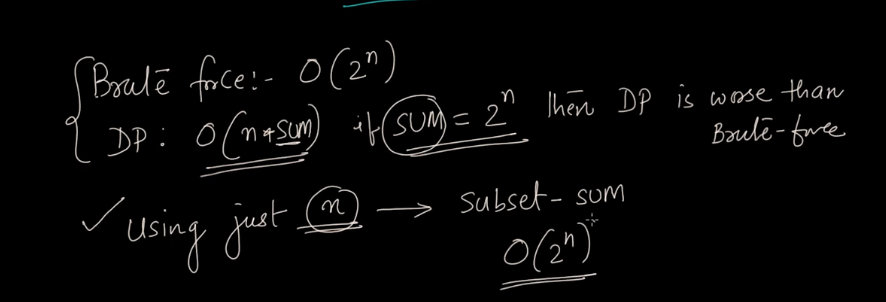 Brute force:- O(2ⁿ)
DP: O(n*sum) if SUM = 2ⁿ then DP is worse than
Brute-force
✓ Using just n → subset-sum
O(2ⁿ)